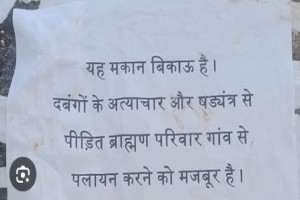 यह मकान बिकाऊ है।
दबंगों के अत्याचार और षड्यंत्र से
पीड़ित ब्राह्मण परिवार गांव से
पलायन करने को मजबूर है।